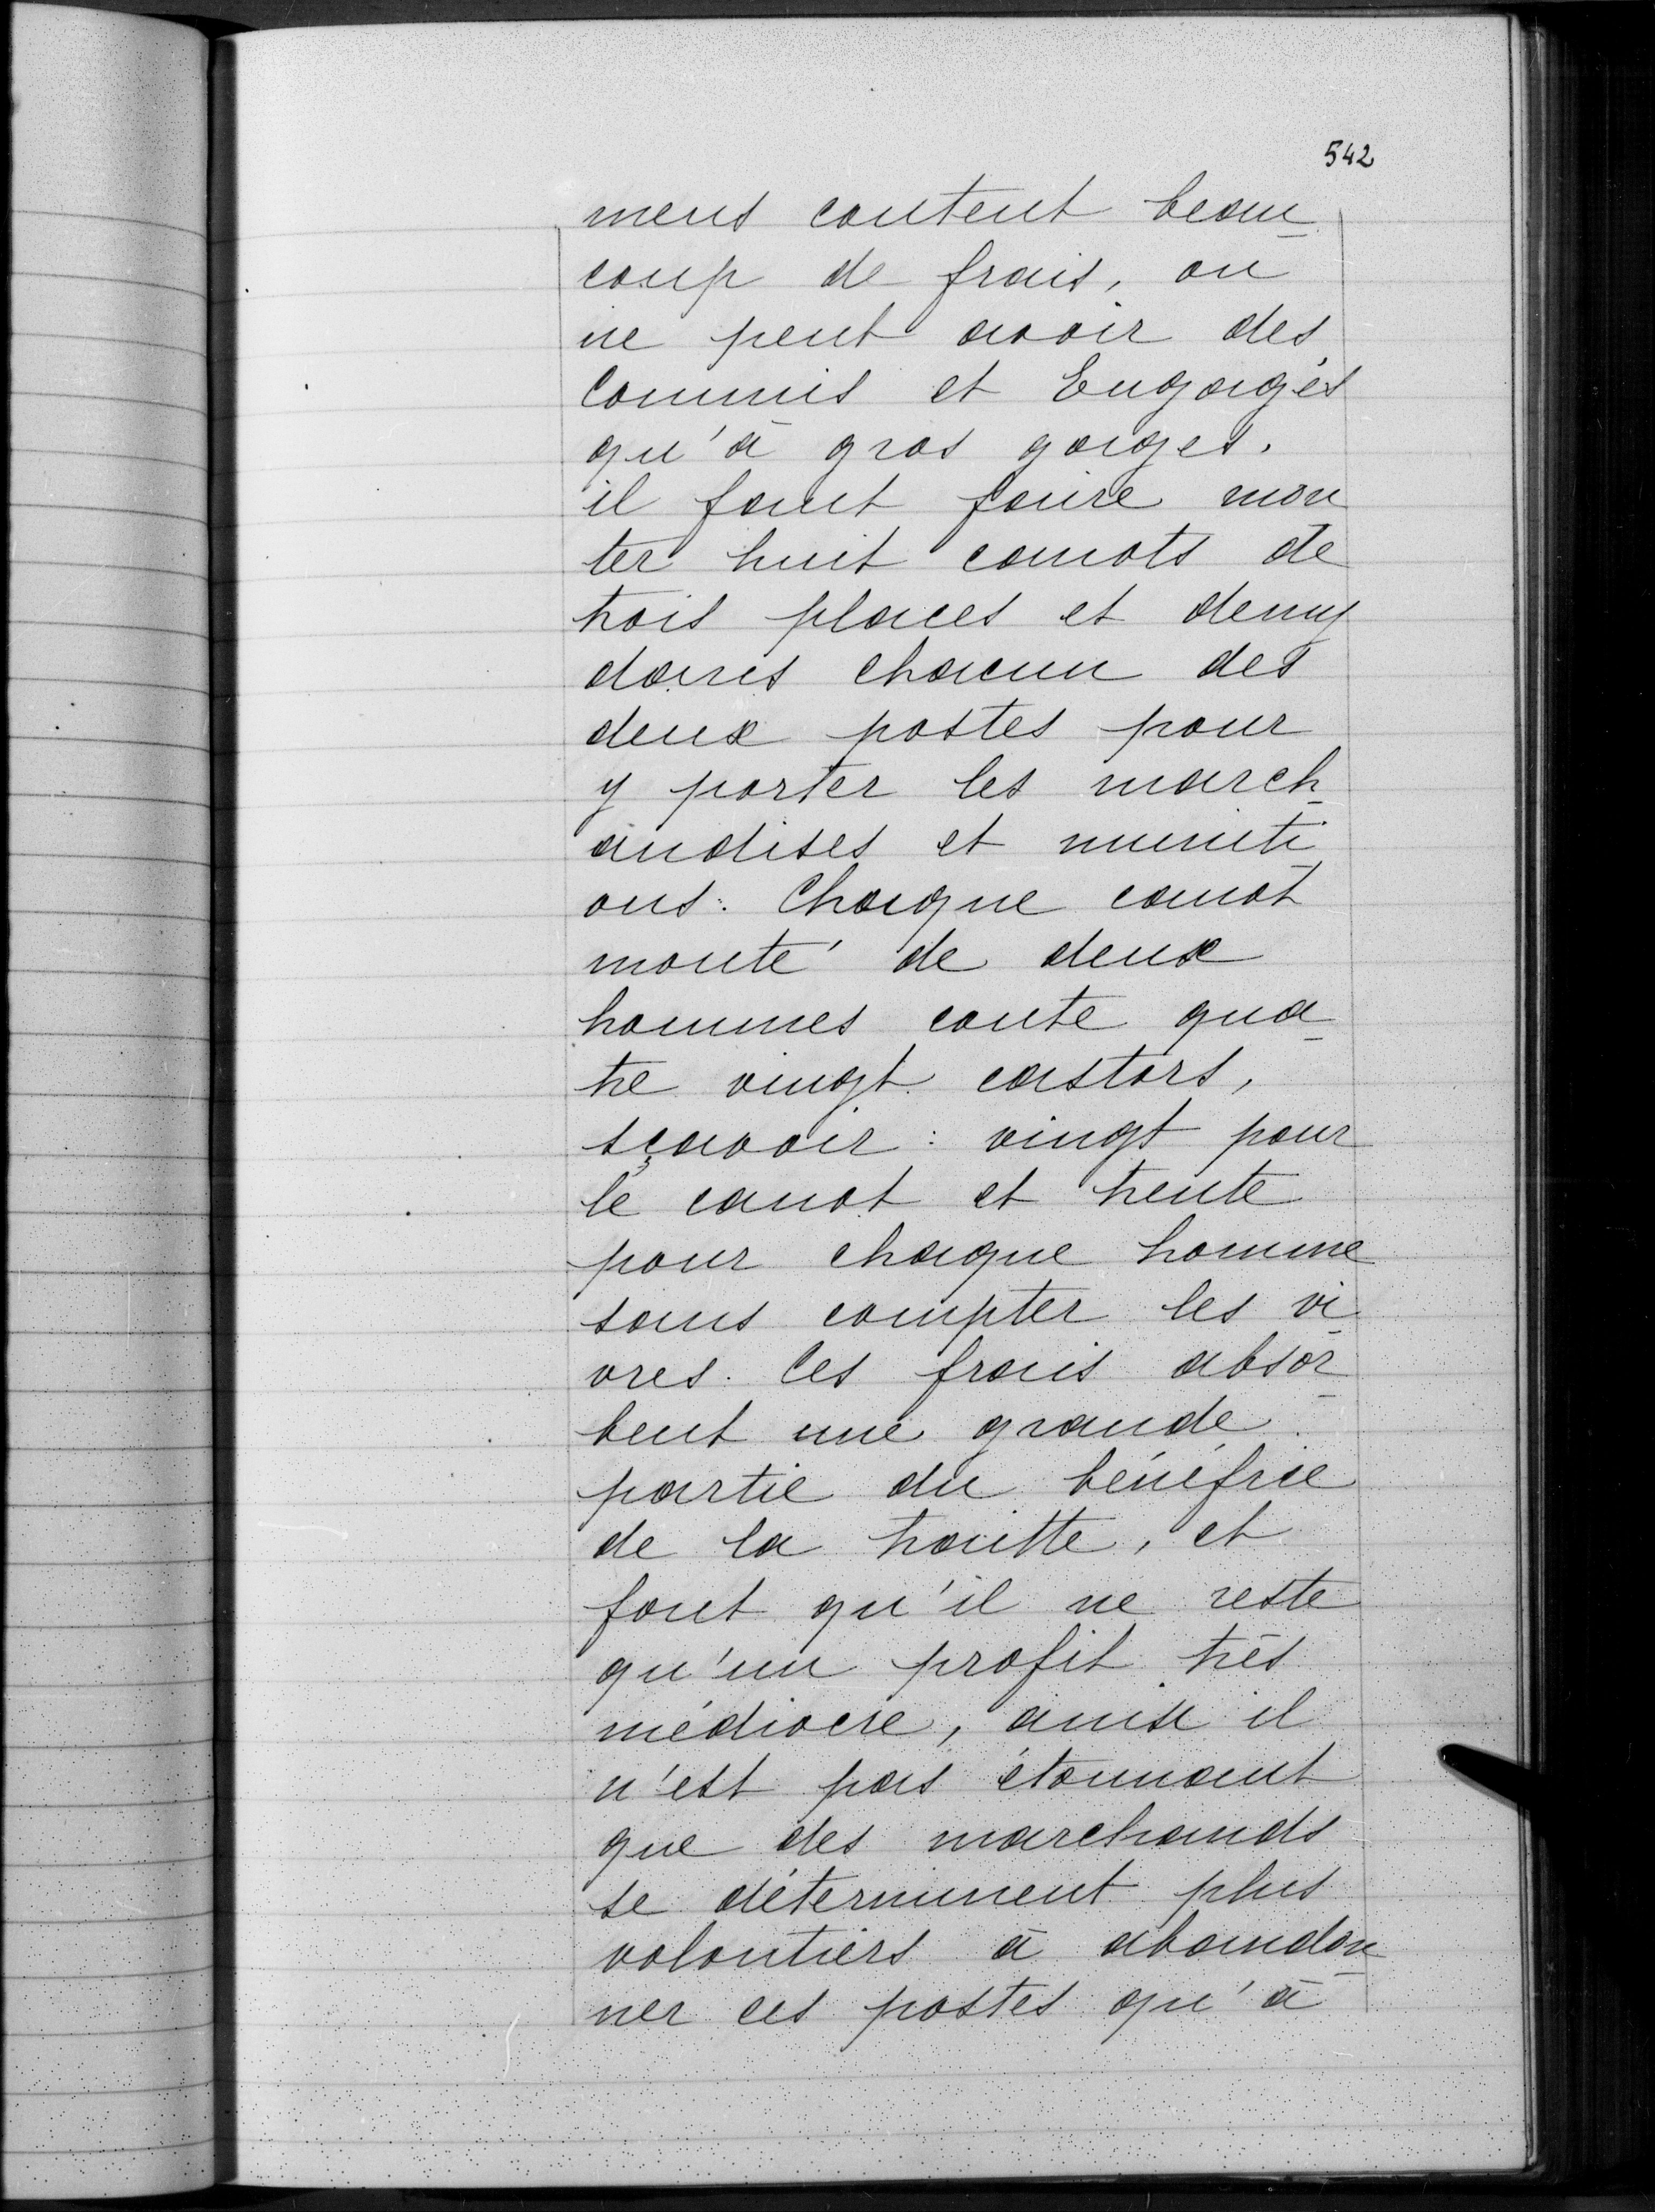 542
mens coutent beau
coup de frais, on
ne peut avoir des
Commis et Engagés
qu'à gros gages.
il faut faire mon
ter huit canots de
trois places et demy
dans chacun des
deux postes pour
y porter les march
andises et muniti
ons. Chaque canot
monté de deux
hommes coute qua
tre vingt castors,
sçavoir : vingt pour
le canot et trente
pour chaque homme
sans compter les vi
vres. Ces frais absor
bent une grande
partie du bénéfice
de la traitte, et
font qu'il ne reste
qu'un profit très
médiocre, ainsi il
n'est pas étonnant
que des marchands
se déterminent plus
volontiers à abandon
ner ces postes qu'à